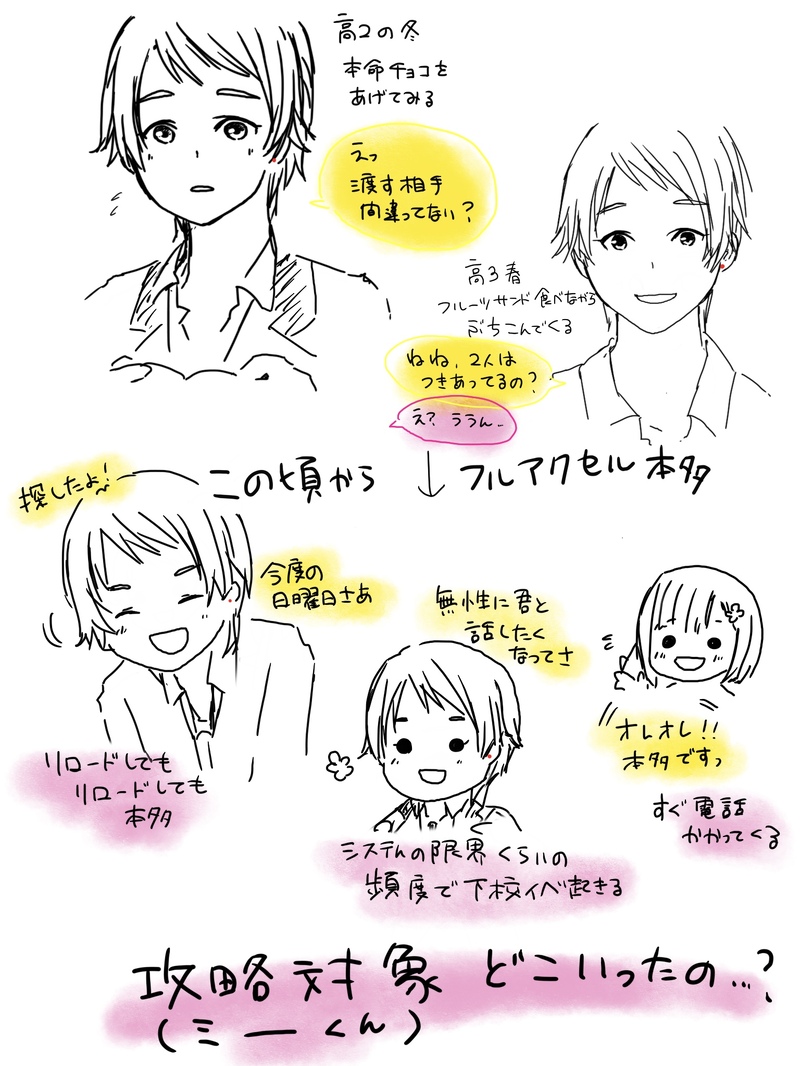 高2の冬
本命チョコを
あげてみる
えっ
渡す相手
間違ってない?
高3春
フルーツサンド食べながら
ぶちこんでくる
ねね、2人は
つきあってるの?
え? ううん..
この頃から
↓
フルアクセル本多
探したよ!
今度の
日曜日さあ
リロードしても
リロードしても
本多
無性に君と
話したく
なってさ
オレオレ!!
本多ですっ
すぐ電話
かかってくる
システムの限界くらいの
頻度で下校イベ起きる
攻略対象 どこいったの...?
(ミーくん)